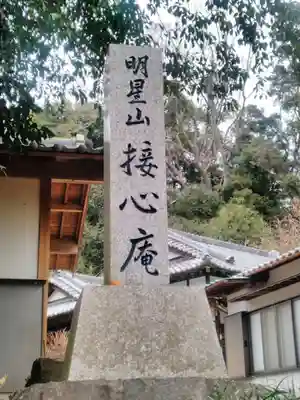 明星山接心庵